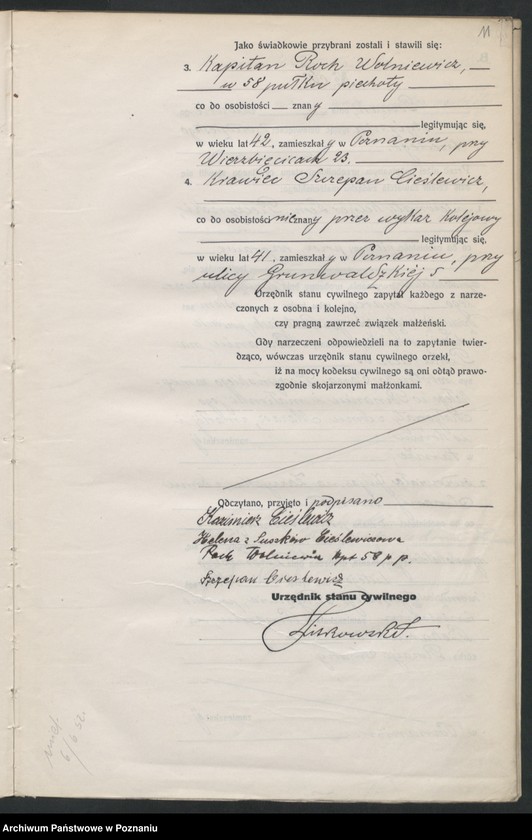 11
Jako świadkowie przybrani zostali i stawili się:
3. Kapitan Roch Wolniewicz,
w 58 pułku piechoty
co do osobistości znany
legitymując się,
w wieku lat 42, zamieszkały w Poznaniu, przy
Wierzbięcicach 23.
4. Krawiec Szczepan Cieślewicz,
co do osobistości nieznany przez wykaz kolejowy
legitymując się,
w wieku lat 41, zamieszkały w Poznaniu, przy
ulicy Grunwaldzkiéj 5
Urzędnik stanu cywilnego zapytał każdego z narze-
czonych z osobna i kolejno,
czy pragną zawrzeć związek małżeński.
Gdy narzeczeni odpowiedzieli na to zapytanie twier-
dząco, wówczas urzędnik stanu cywilnego orzekł,
iż na mocy kodeksu cywilnego są oni odtąd prawo-
zgodnie skojarzonymi małżonkami.
Odczytano, przyjęto i podpisano
Kazimierz Cieślewicz
Helena z Suszków Cieślewiczowa
Roch Wolniewicz kpt 58 p. p.
Szczepan Cieslewicz
Urzędnik stanu cywilnego
6/6 52.
Archiwum Państwowe w Poznaniu